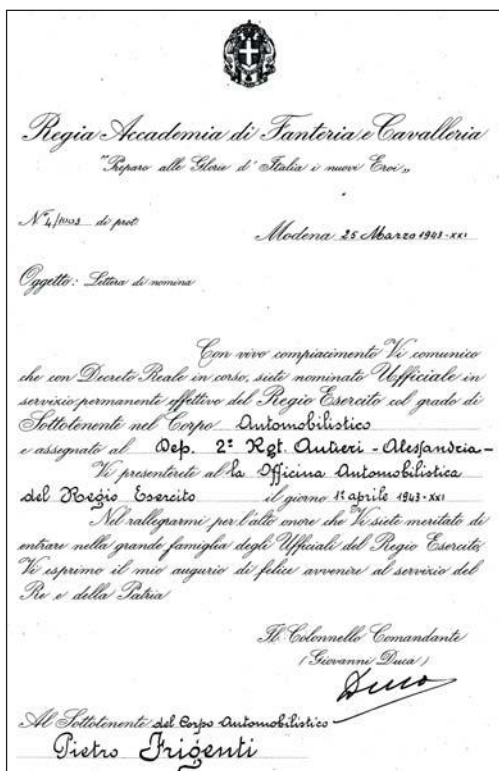 Regia Accademia di Fanteria e Cavalleria
"Preparo alle Glorie d'Italia i nuovi Eroi„
N° 4/1003 di prot.
Modena 25 Marzo 1943-XXI
Oggetto: Lettera di nomina
Con vivo compiacimento Vi comunico
che con Decreto Reale in corso, siete nominato Ufficiale in
servizio permanente effettivo del Regio Esercito col grado di
Sottotenente nel Corpo Automobilistico
e assegnato al Dep. 2° Rgt. Autieri - Alessandria -
Vi presenterete al la Officina Automobilistica
del Regio Esercito il giorno 1° aprile 1943-XXI
Nel rallegrarmi per l'alto onore che Vi siete meritato di
entrare nella grande famiglia degli Ufficiali del Regio Esercito
Vi esprimo il mio augurio di felice avvenire al servizio del
Re e della Patria
Il Colonnello Comandante
(Giovanni Duca)
Duca
Al Sottotenente del Corpo Automobilistico
Pietro Frigenti